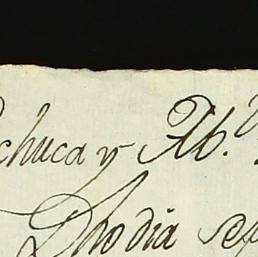 chuca y Ab.
Dho dia se